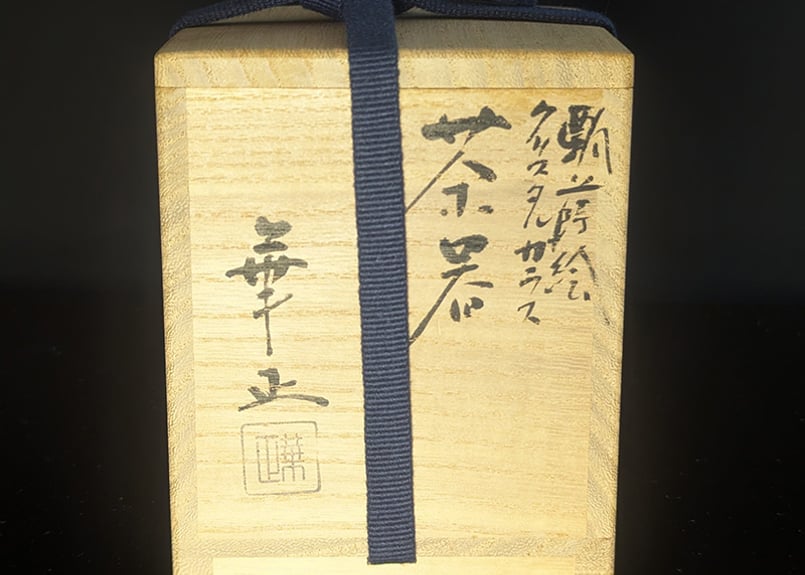 瓢蒔絵
クリスタルガラス
茶器
華正